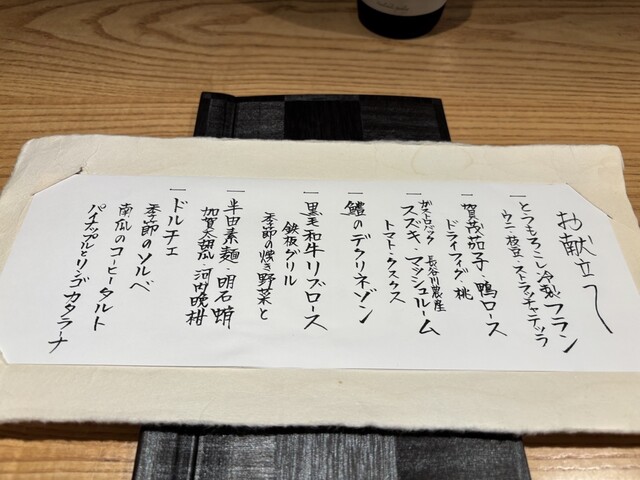 お献立
一 とうもろこし冷製フラン
ウニ・枝豆・ストラッチャテッラ
一 賀茂茄子・鴨ロース
ドライフィグ 桃
一 ガストロバック 長谷川農産
スズキ・マッシュルーム
トマト・クスクス
一 鱧のデクリネゾン
一 黒毛和牛リブロース
鉄板グリル
季節の焼き野菜と
一 半田素麺・明石蛸
加賀太胡瓜・河内晩柑
一 ドルチェ
季節のソルベ
南瓜のコーヒータルト
パイナップルとリンゴ カタラーナ